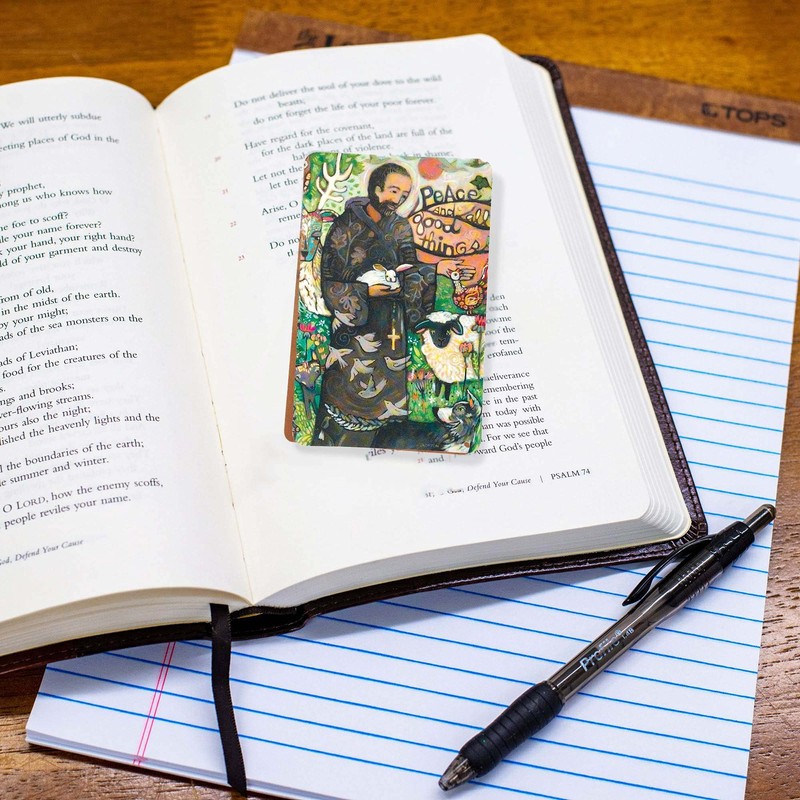 We will utterly subdue
eeting places of God in the
y prophet,
ong us who knows how
he foe to scoff?
ile your name forever?
k your hand, your right hand?
ld of your garment and destroy
from of old,
in the midst of the earth.
by your might;
ads of the sea monsters on the
ads of Leviathan;
food for the creatures of the
s.
ngs and brooks;
ver-flowing streams.
ours also the night;
lished the heavenly lights and the
l the boundaries of the earth;
le summer and winter.
O LORD, how the enemy scoffs,
people reviles your name.
God, Defend Your Cause
Do not deliver the soul of your dove to the wild
beasts;
do not forget the life of your poor forever.
20 Have regard for the covenant,
for the dark places of the land are full of the
of violence.
21 Let not the
let the
in shame;
22 Arise, O
reme
23 Do no
th
Peace
and all
good
things
den
each
oor the
tem-
erofaned
eliverance
emembering
e in the past
m today with
an was possible
For we see that
and
ward God's people
Defend Your Cause | PSALM 74
TOPS
Profile 1.4B